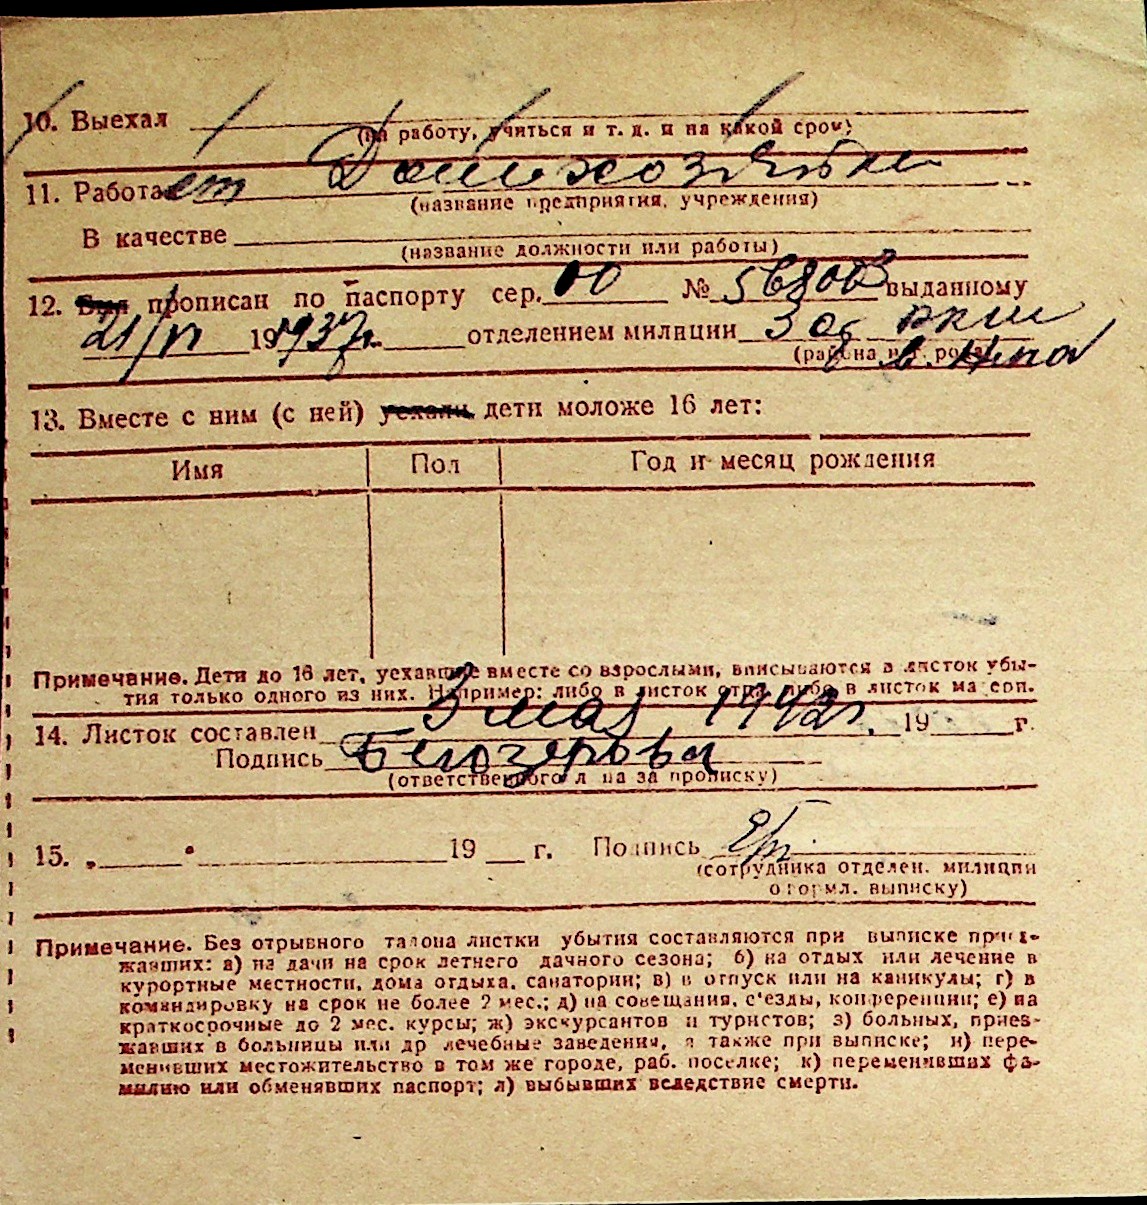 10. Выехал
(на работу, учиться и т. д. и на какой срок)
11. Работает Домхозяйка
(название предприятия, учреждения)
В качестве
(название должности или работы)
12. Был прописан по паспорту сер. № выданному
21/VI 1937г. отделением милиции 3 об РКМ
(района и г. рода)
13. Вместе с ним (с ней) уехали дети моложе 16 лет:
Имя Пол Год и месяц рождения
Примечание. Дети до 16 лет, уехавшие вместе со взрослыми, вписываются в листок убы-
тия только одного из них. Например: либо в листок отца, либо в листок матери.
14. Листок составлен 3 мая 1942г. 19 г.
Подпись Белозерова
(ответственного л ца за прописку)
15. „ " 19 г. Подпись
(сотрудника отделен. милиции
оформл. выписку)
Примечание. Без отрывного талона листки убытия составляются при выписке приез-
жавших: а) на дачи на срок летнего дачного сезона; б) на отдых или лечение в
курортные местности, дома отдыха, санатории; в) в отпуск или на каникулы; г) в
командировку на срок не более 2 мес.; д) на совещания, с'езды, конференции; е) на
краткосрочные до 2 мес. курсы; ж) экскурсантов и туристов; з) больных, приез-
жавших в больницы или др лечебные заведения, а также при выписке; и) пере-
менивших местожительство в том же городе, раб. поселке; к) переменивших фа-
милию или обменявших паспорт; л) выбывших вследствие смерти.